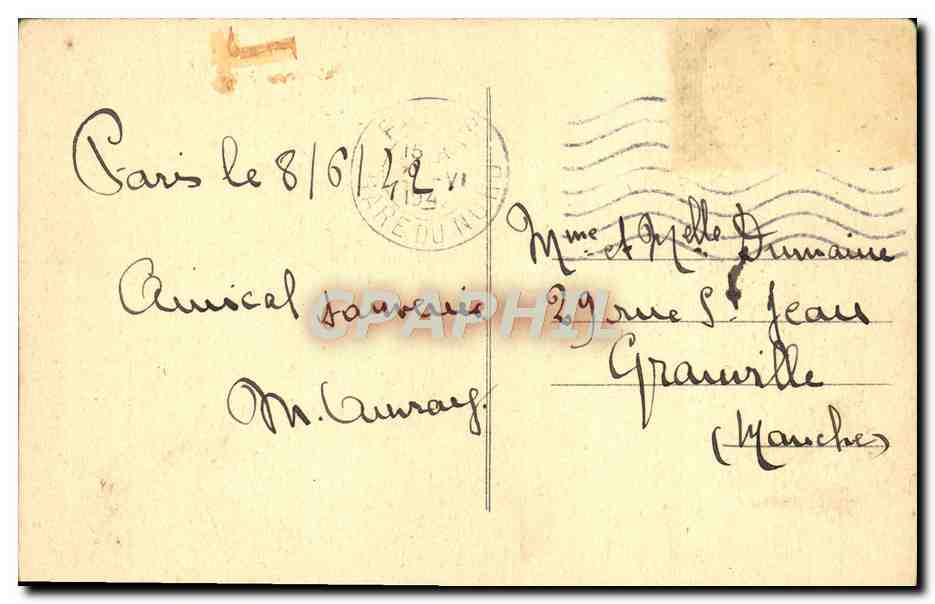 Paris le 8/6/42
Amical souvenir
M. Auvray
PARIS
GARE DU NORD
15
VI
194
Mme et Melle Dumaine
29 rue St Jean
Granville
(Manche)
CPAPHIL